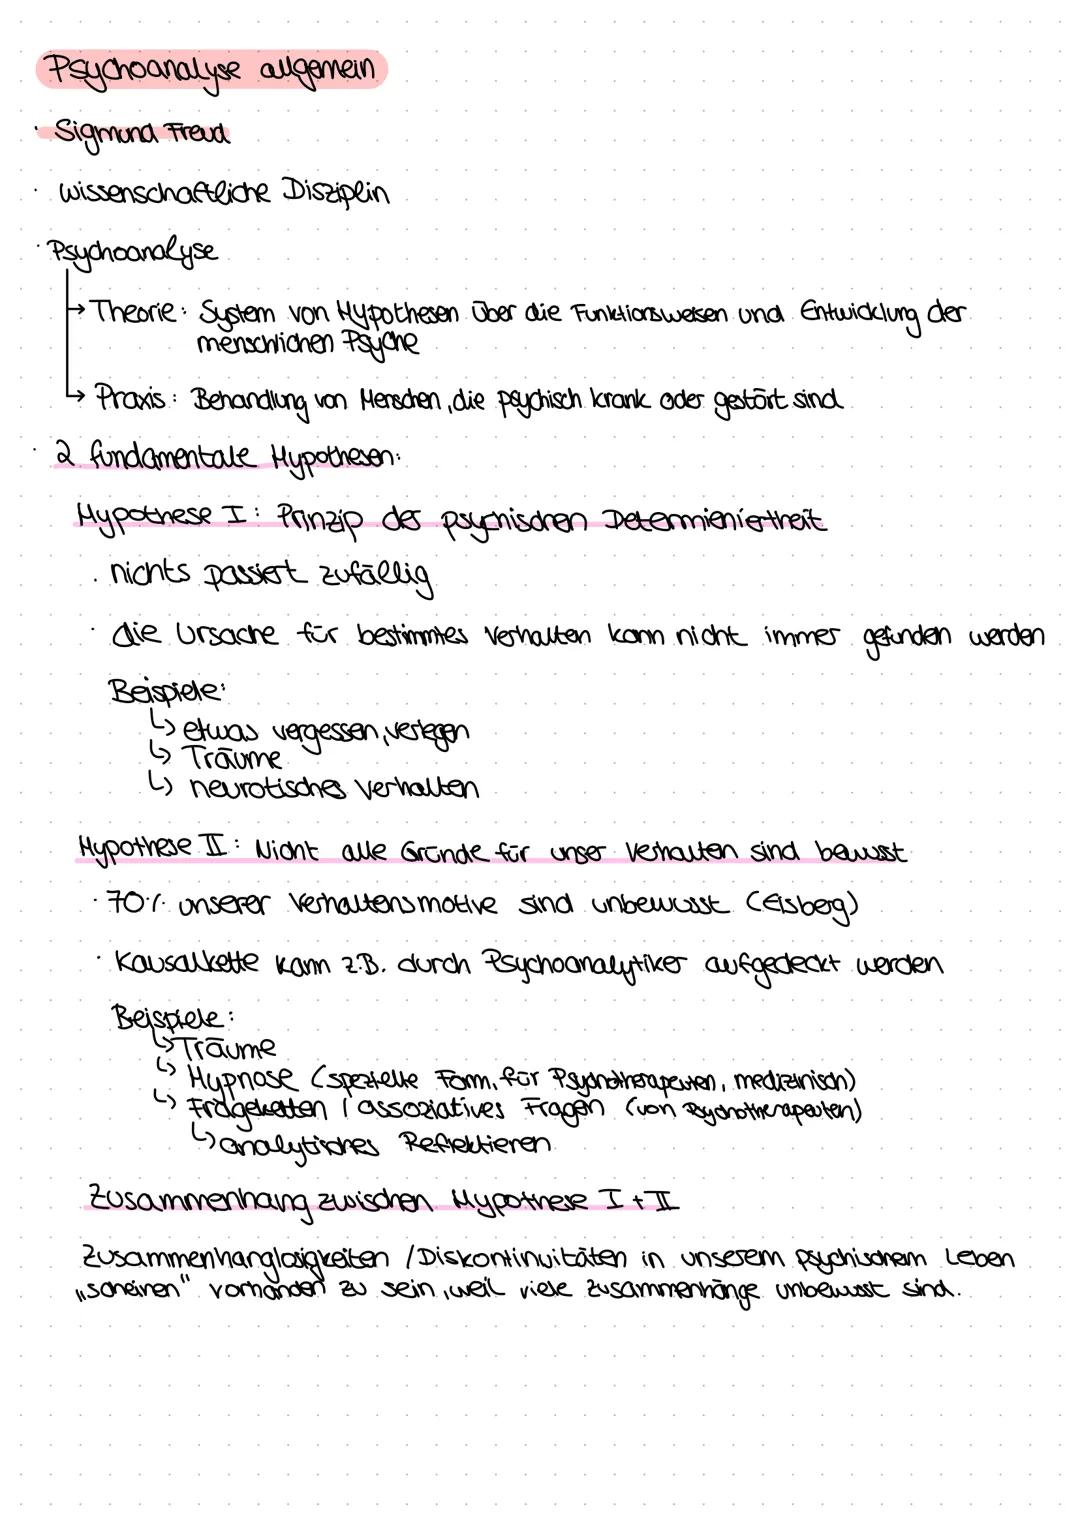 Psychoanalyse allgemein
· Sigmund Freud
· wissenschaftliche Disziplin
· Psychoanalyse
→ Theorie: System von Hypothesen über die Funktionsweisen und Entwicklung der
menschlichen Psyche
↳ Praxis: Behandlung von Menschen, die psychisch krank oder gestört sind
· 2 fundamentale Hypothesen:
Hypothese I: Prinzip der psychischen Determieniertheit
· nichts passiert zufällig
· die Ursache für bestimmtes Verhalten kann nicht immer gefunden werden
Beispiele:
↳ etwas vergessen, verlegen
↳ Träume
↳ neurotisches Verhalten
Hypothese II: Nicht alle Gründe für unser Verhalten sind bewusst
· 70% unserer Verhaltensmotive sind unbewusst (Eisberg)
· Kausalkette kann z.B. durch Psychoanalytiker aufgedeckt werden
Beispiele:
↳ Träume
↳ Hypnose (spezielle Form, für Psychotherapeuten, medizinisch)
↳ Frageketten / assoziatives Fragen (von Psychotherapeuten)
↳ analytisches Reflektieren
Zusammenhang zwischen Hypothese I + II
Zusammenhanglosigkeiten / Diskontinuitäten in unserem psychischem Leben
„scheinen" vorhanden zu sein, weil viele Zusammenhänge unbewusst sind.